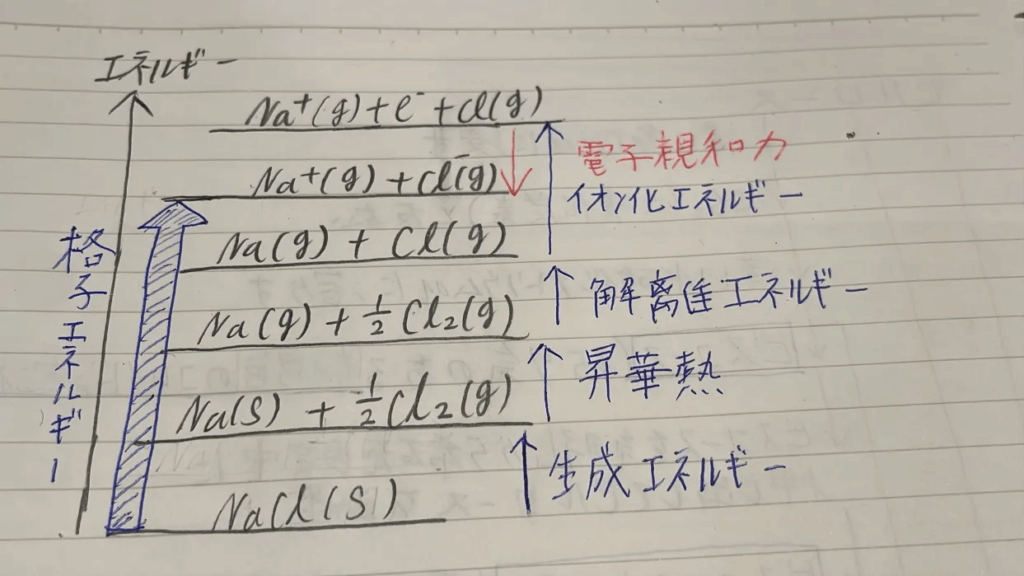 エネルギー
Na⁺(g)+e⁻+Cl(g)
電子親和力
Na⁺(g)+Cl⁻(g)
イオン化エネルギー
Na(g)+Cl(g)
格子エネルギー
解離エネルギー
Na(g)+½Cl₂(g)
昇華熱
Na(s)+½Cl₂(g)
生成エネルギー
NaCl(s)